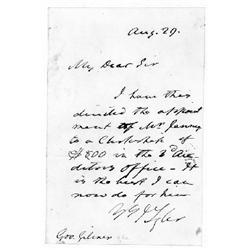 Aug. 29.
My Dear Sir
I have thus
decided the appoint
ment of Mr
to a Clerkship of
$800 in the 3d Au
ditors office - It
is the best I can
now do for him
J Tyler
Gov. Gilmer